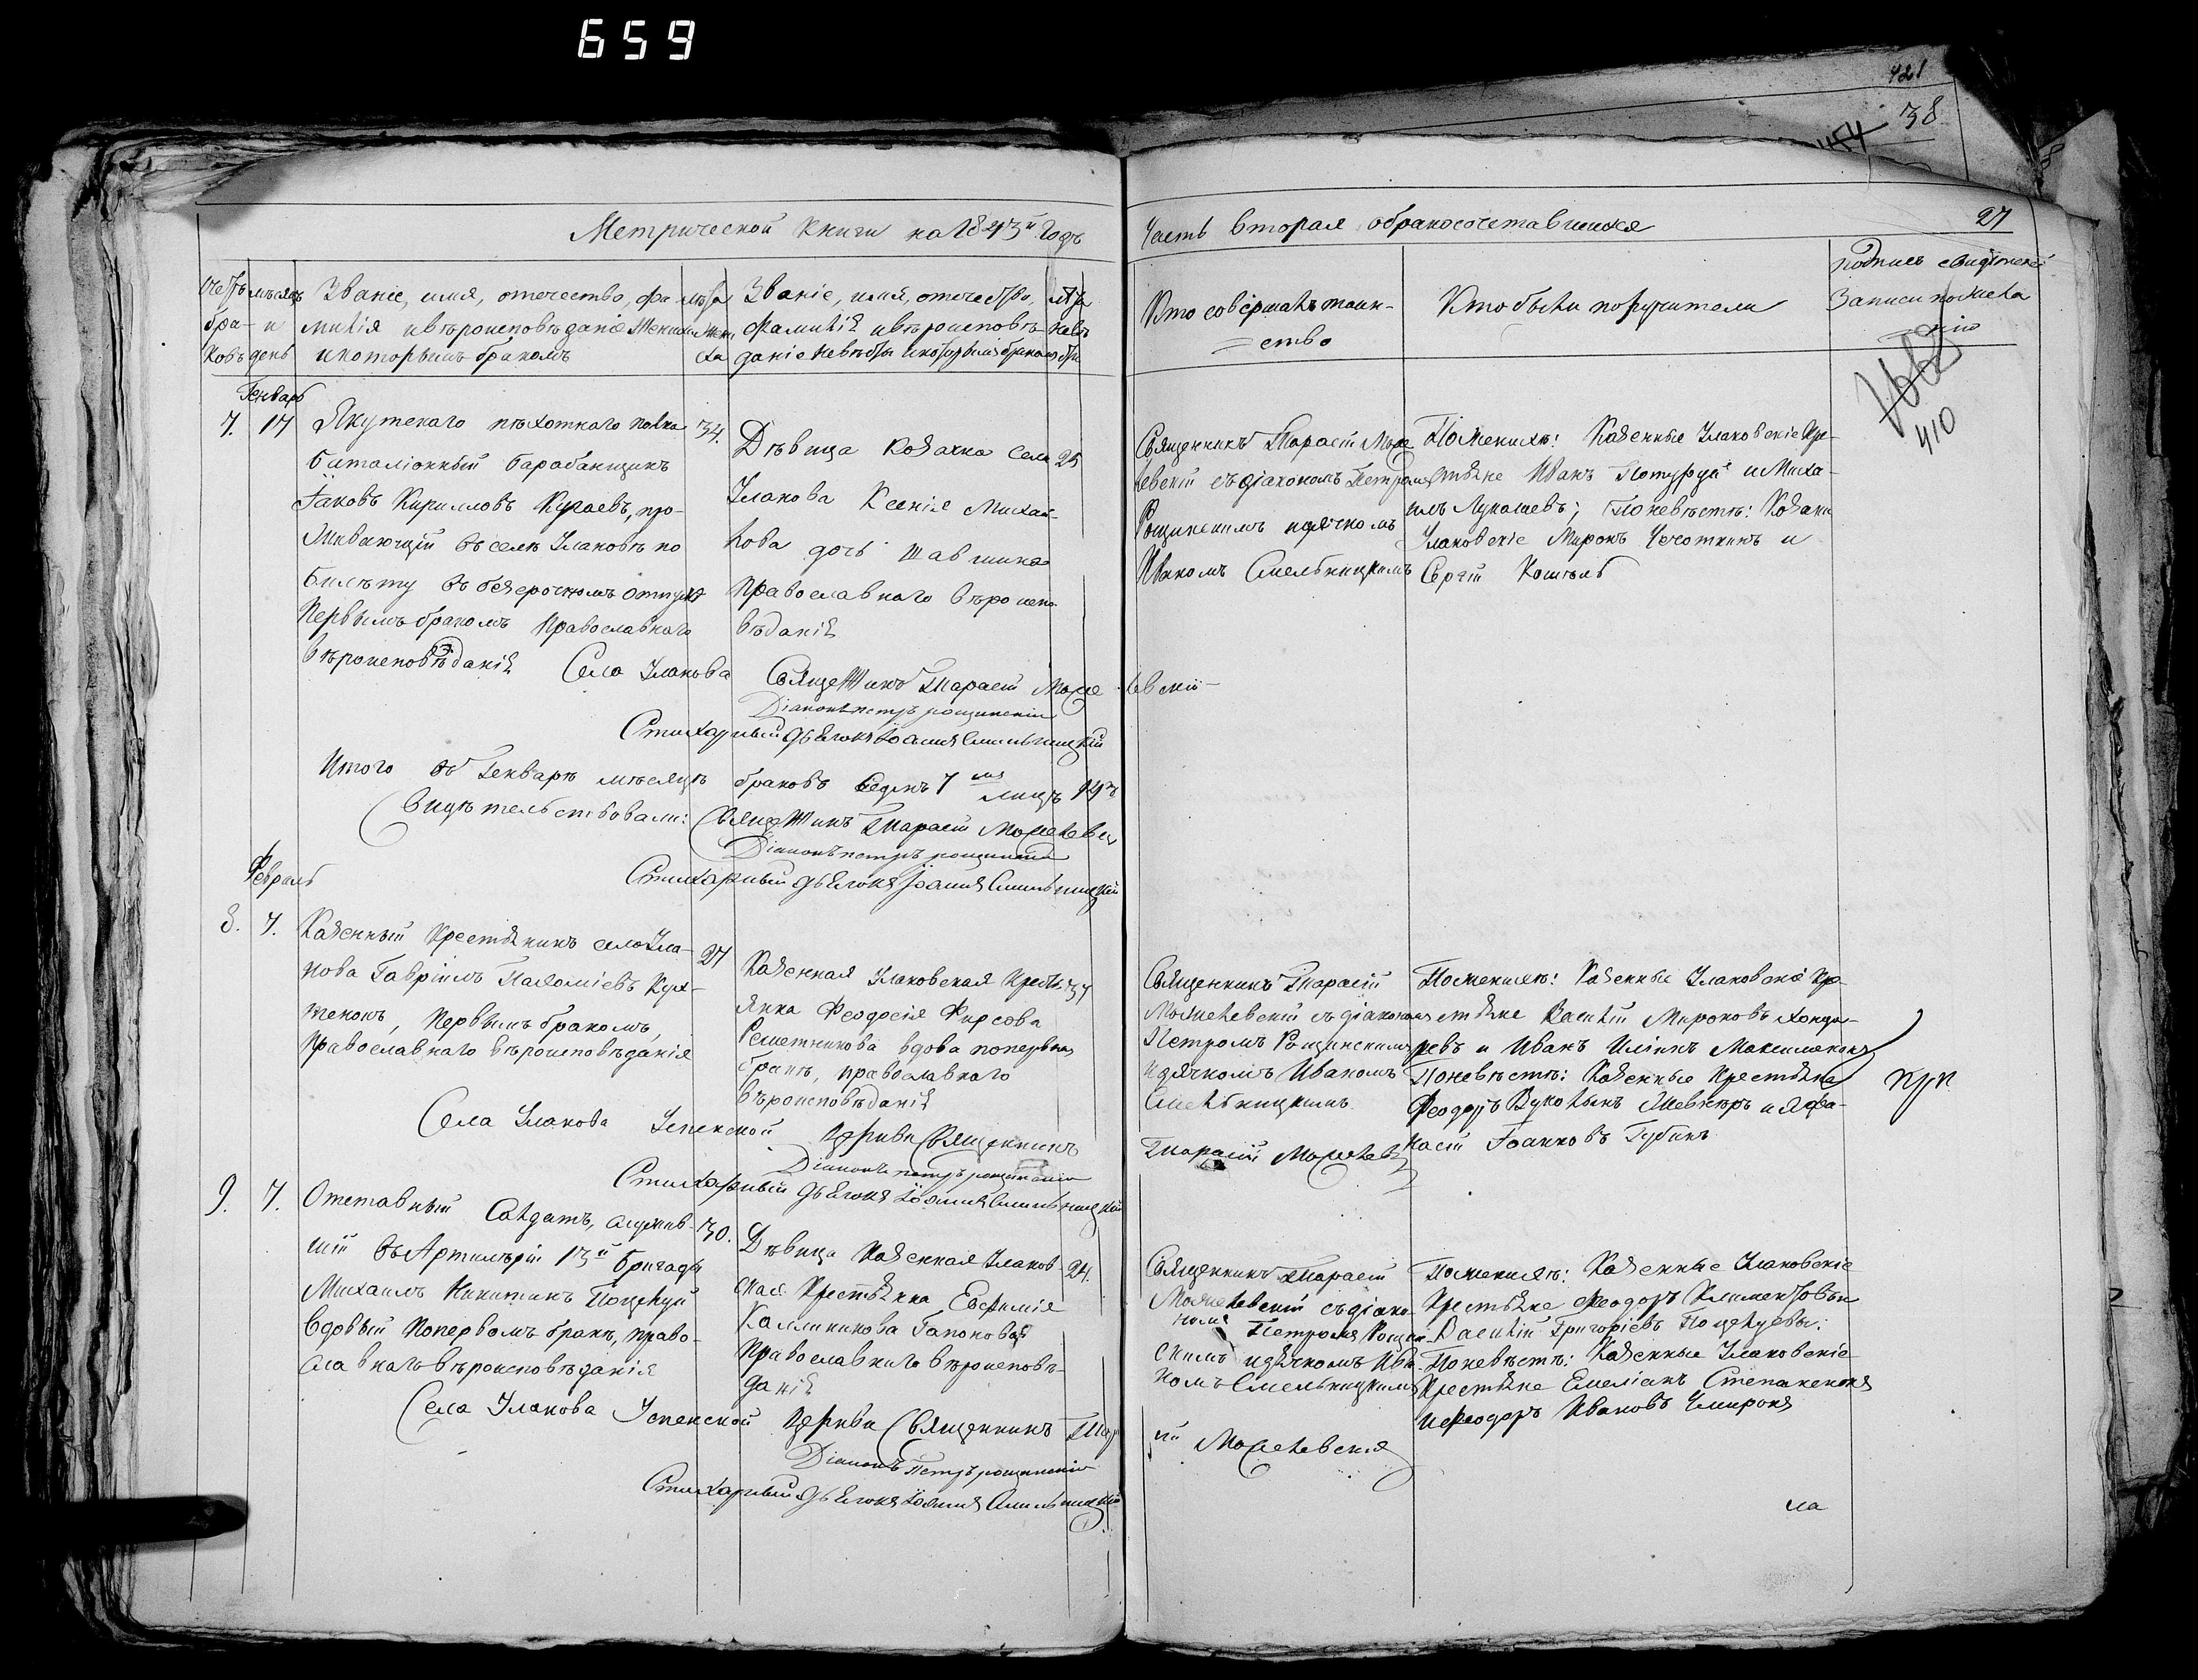 659
421
38
454
Метрической Книги на 1843й Годъ
Часть вторая обракосочетавшихся
27
Счетъ браковъ
мѣсяцъ и день
Званіе, имя, отечество, фамилія и вѣроисповѣданіе Жениха и которымъ бракомъ
лѣта жениха
Званіе, имя, отечество, фамилія и вѣроисповѣданіе Невѣсты и которымъ бракомъ
лѣта невѣсты
Кто совершалъ таинство
Кто были поручители
подпись свидѣтелей записи по желанію
410
Генварь
7. 17
Якутскаго пѣхотнаго полка
баталіонный барабанщикъ
Іаковъ Кирилловъ Кугаевъ, про-
живающій въ селѣ Улановѣ по
билѣту въ безсрочномъ отпускѣ
Первымъ бракомъ Православнаго
вѣроисповѣданія
34.
Дѣвица Козачка села
Уланова Ксенія Михай-
лова дочь
Православнаго вѣроиспо-
вѣданія
25
Священникъ Тарасій Може-
левскій съ діакономъ Петромъ
Рощинскимъ и дячкомъ
Иваномъ Смельницкимъ
По Женихѣ: Казенные Улановскіе Кре-
стьяне Иванъ Потуруй и Миха-
илъ Лукашевъ; По невѣстѣ: Козаки
Улановскіе Миронъ Чечоткинъ и
Сергій Кошель
Села Уланова Священникъ Тарасій Можелевскій
Діаконъ Петръ Рощинскій
Стихарный дьячокъ Іоаннъ Смельницкій
Итого въ Генварѣ мѣсяцѣ браковъ седмь 7 лицъ 14
Свидѣтельствовали: Священникъ Тарасій Можелевскій
Діаконъ Петръ Рощинскій
Стихарный дьячокъ Іоаннъ Смельницкій
Февраль
8. 7.
Казенный Крестьянинъ села Ула-
нова Гавріилъ Пахоміевъ Кух-
тенокъ, Первымъ бракомъ,
Православнаго вѣроисповѣданія
27
Казенная Улановская Кресть-
янка Феодосія Фирсова
Решетникова вдова по первомъ
бракѣ, православнаго
вѣроисповѣданія
37
Священникъ Тарасій
Можелевскій съ діакономъ
Петромъ Рощинскимъ
и дячкомъ Иваномъ
Смельницкимъ
По женихѣ: Казенные Улановскіе Кре-
стьяне Василій Мироновъ
и Иванъ Ильинъ Максименокъ
По невѣстѣ: Казенные Крестьяне
Феодоръ и Афа-
насій Іоанновъ Губинъ
Села Уланова Успенской Церкви Священникъ Тарасій Можелевскій
Діаконъ Петръ Рощинскій
Стихарный дьячокъ Іоаннъ Смельницкій
9. 7.
Отставный Солдатъ, служив-
шій въ Артилеріи 13й бригады
Михаилъ Никитинъ Поцелуй
вдовый по первомъ бракѣ, право-
славнаго вѣроисповѣданія
30.
Дѣвица Казенная Уланов-
ская Крестьянка Евфимія
Каллиникова Гапонова
Православнаго вѣроисповѣ-
данія
24.
Священникъ Тарасій
Можелевскій съ діако-
номъ Петромъ Рощин-
скимъ и дячкомъ Ива-
номъ Смельницкимъ
По женихѣ: Казенные Улановскіе
Крестьяне Феодоръ Климентовъ и
Василій Григоріевъ Поцелуевы;
По невѣстѣ: Казенные Улановскіе
Крестьяне Емеліанъ Степаненокъ
и Феодоръ Ивановъ
Села Уланова Успенской Церкви Священникъ Тарасій Можелевскій
Діаконъ Петръ Рощинскій
Стихарный дьячокъ Іоаннъ Смельницкій